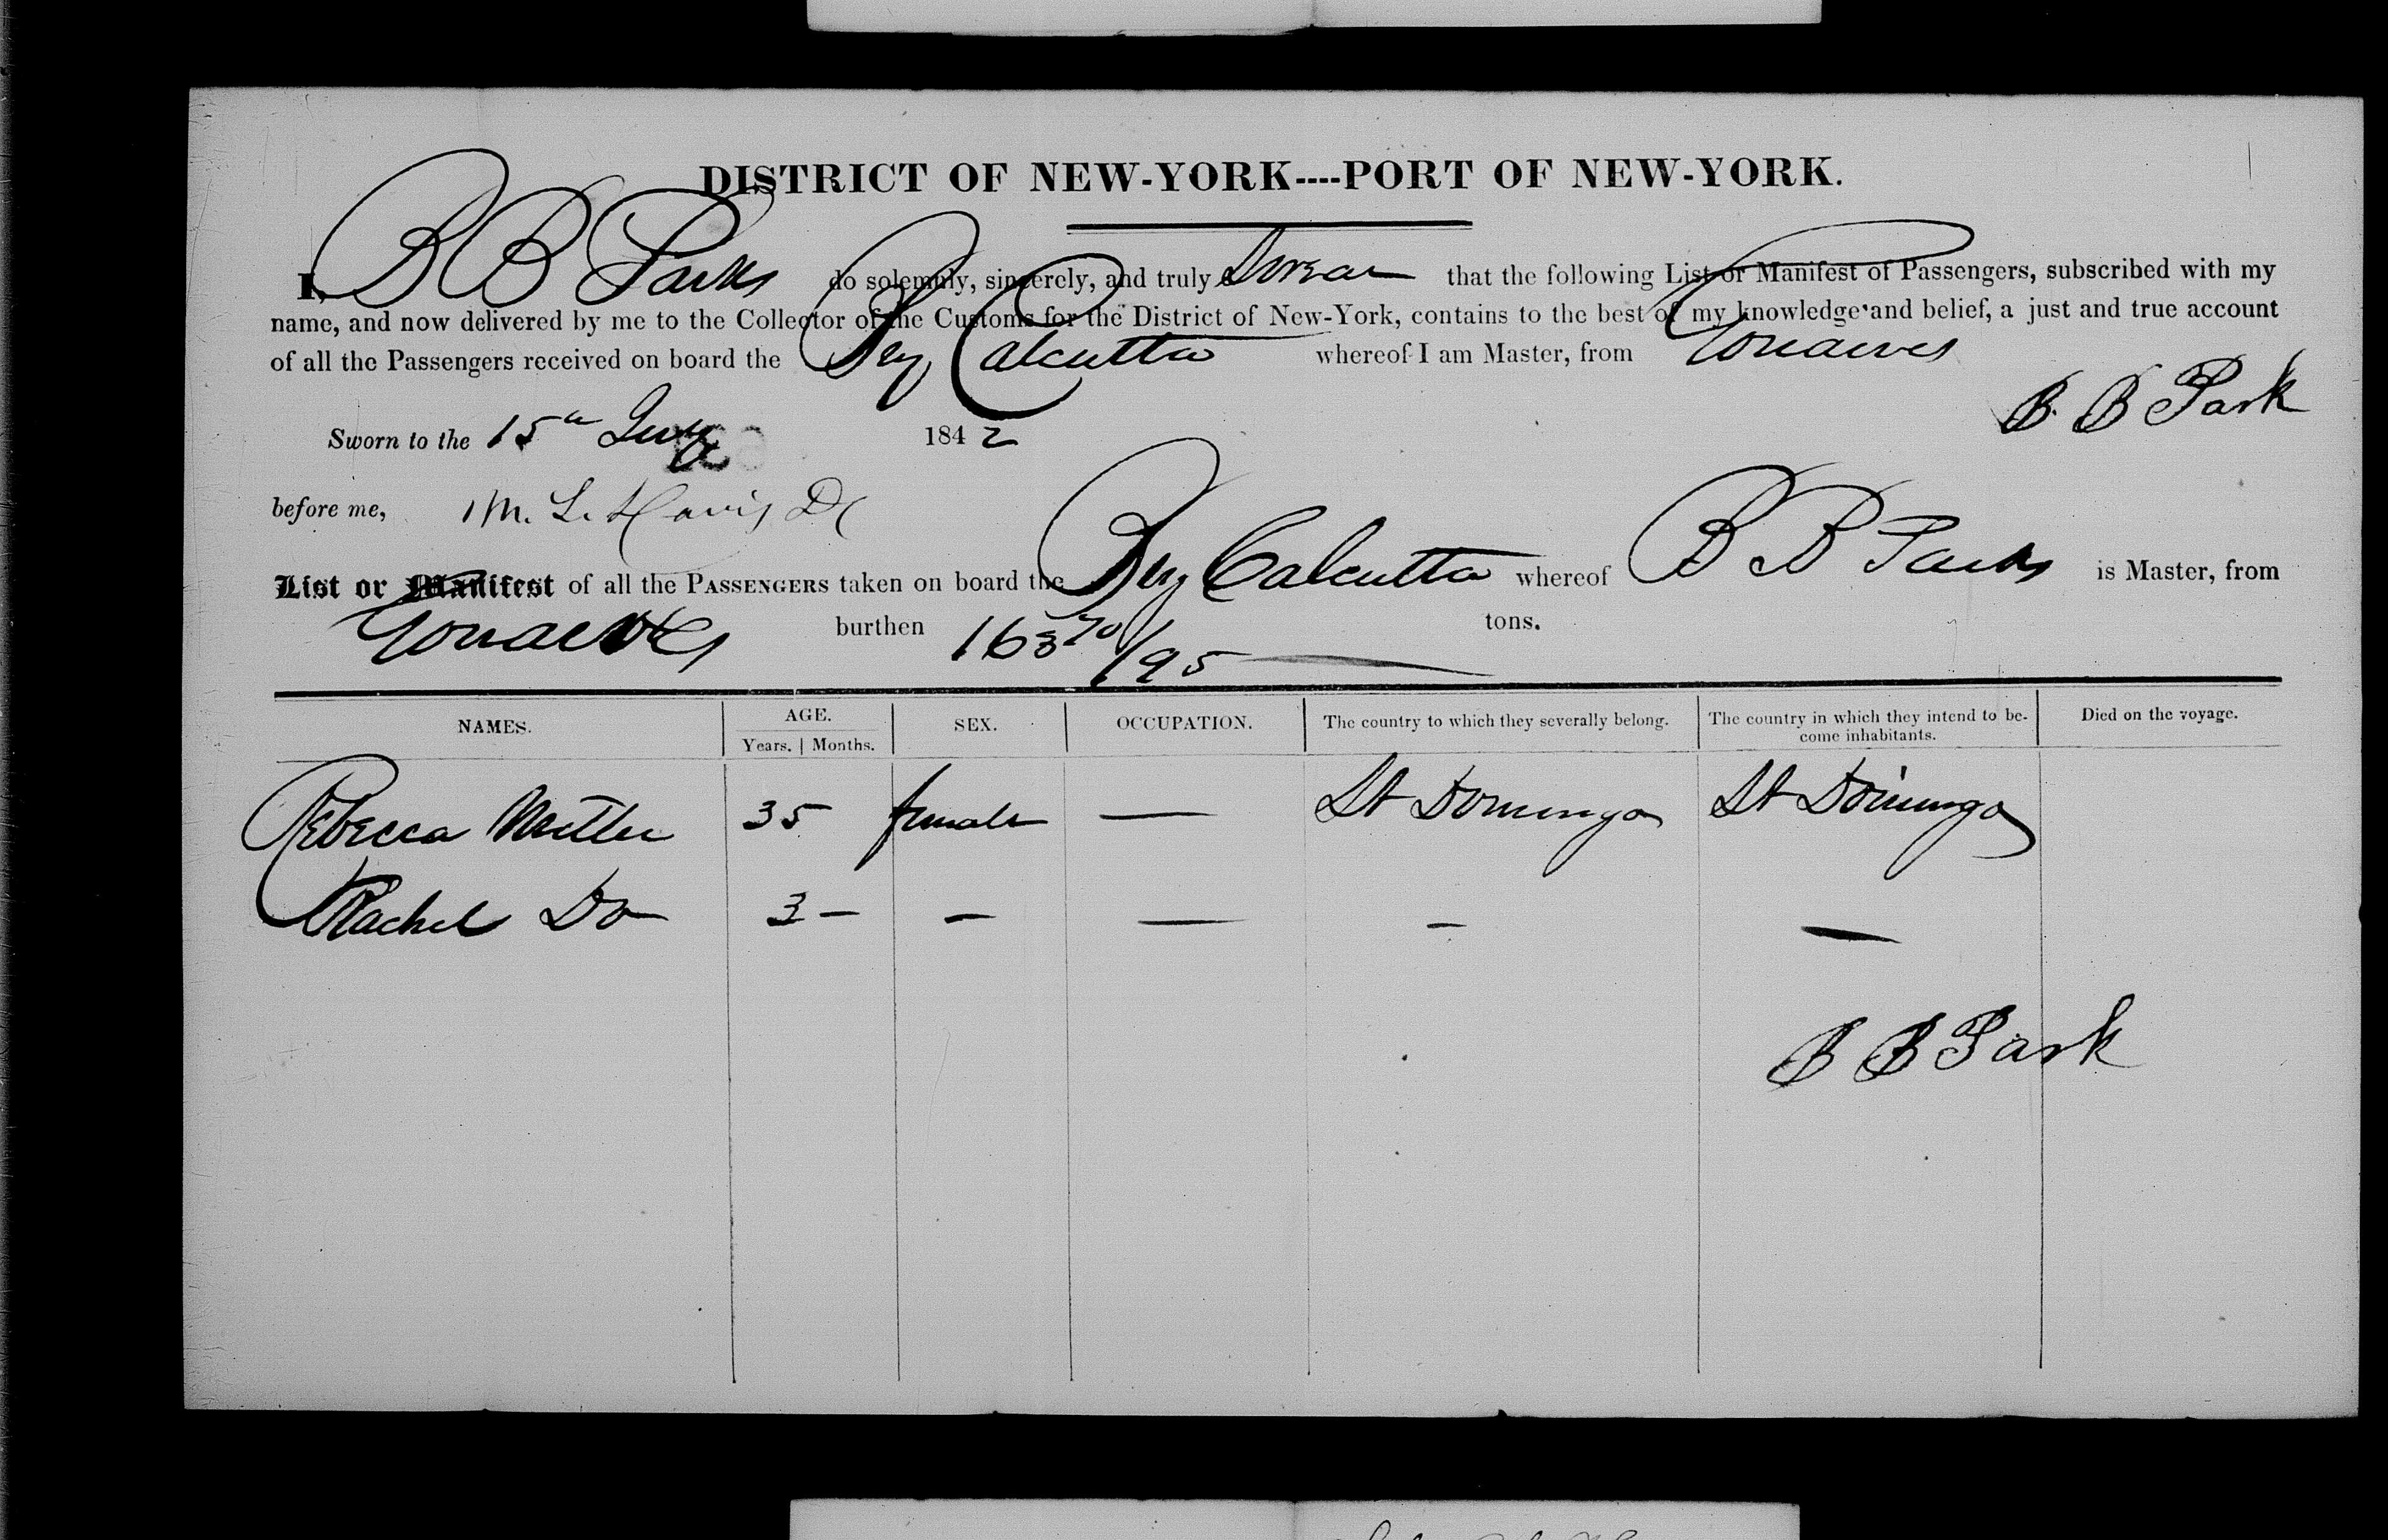 DISTRICT OF NEW-YORK----PORT OF NEW-YORK.
I, B B Parks do solemnly, sincerely, and truly Swear that the following List or Manifest of Passengers, subscribed with my
name, and now delivered by me to the Collector of the Customs for the District of New-York, contains to the best of my knowledge and belief, a just and true account
of all the Passengers received on board the Brig Calcutta whereof I am Master, from Gonaives
B B Park
Sworn to the 15th 1842
before me, M. L. Davis
List or Manifest of all the PASSENGERS taken on board the Brig Calcutta whereof B B Parks is Master, from
Gonaives burthen 163 70/95 tons.
NAMES. AGE. Years. | Months. SEX. OCCUPATION. The country to which they severally belong. The country in which they intend to be-come inhabitants. Died on the voyage.
Rebecca Miller 35 female — St Domingo St Domingo
Rachel Do 3 — — — — —
B B Park